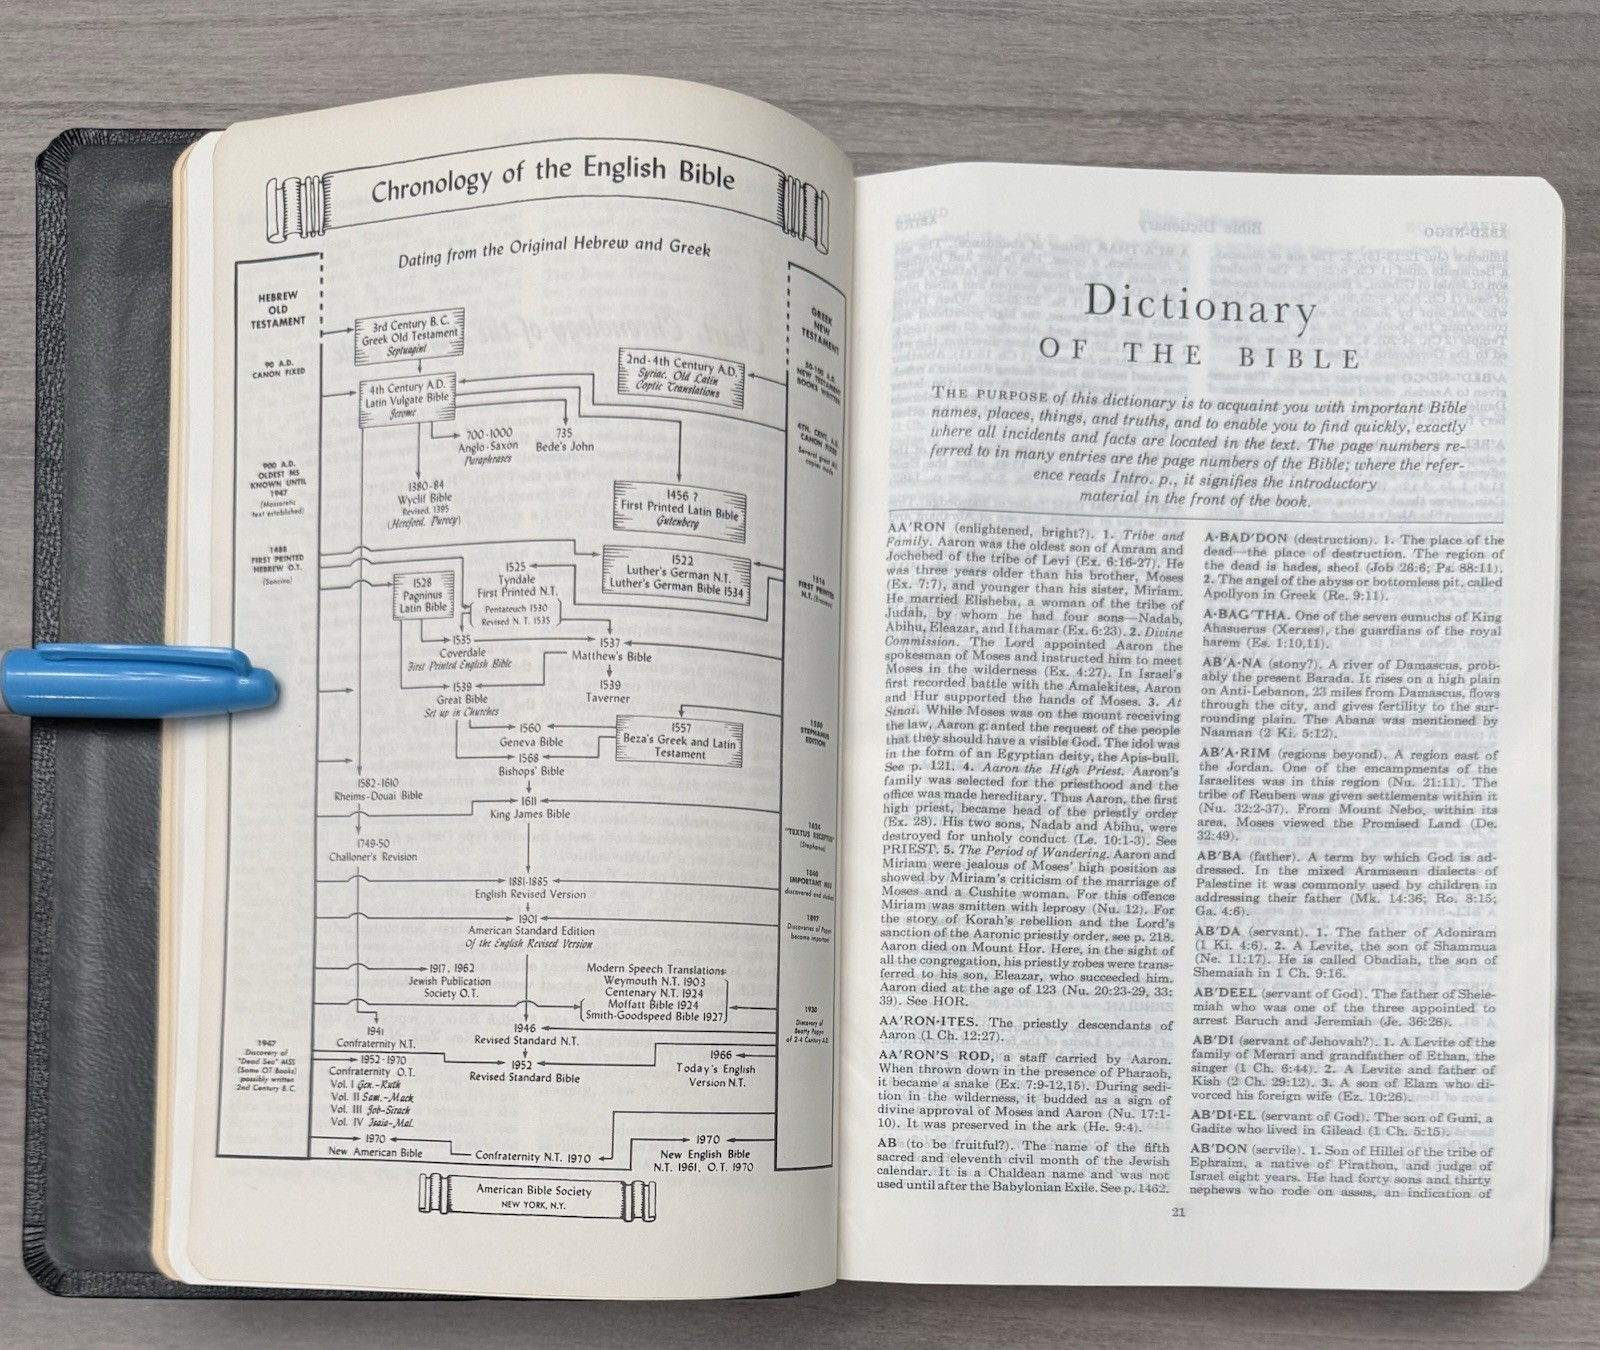 Chronology of the English Bible
Dating from the Original Hebrew and Greek
HEBREW
OLD
TESTAMENT
90 A.D.
CANON FIXED
900 A.D.
OLDEST MS
KNOWN UNTIL
1947
(Massoretic
text established)
1488
FIRST PRINTED
HEBREW O.T.
(Soncino)
1947
Discovery of
"Dead Sea" MSS
(Some OT Books)
possibly written
2nd Century B.C.
3rd Century B.C.
Greek Old Testament
Septuagint
4th Century A.D.
Latin Vulgate Bible
Jerome
2nd-4th Century A.D.
Syriac, Old Latin
Coptic Translations
700-1000
Anglo-Saxon
Paraphrases
735
Bede's John
1380-84
Wyclif Bible
Revised, 1395
(Hereford, Purvey)
1456 ?
First Printed Latin Bible
Gutenberg
1522
Luther's German N.T.
Luther's German Bible 1534
1525
Tyndale
First Printed N.T.
Pentateuch 1530
Revised N.T. 1535
1528
Pagninus
Latin Bible
1535
Coverdale
First Printed English Bible
1537
Matthew's Bible
1539
Taverner
1539
Great Bible
Set up in Churches
1557
Beza's Greek and Latin
Testament
1560
Geneva Bible
1568
Bishops' Bible
1582-1610
Rheims-Douai Bible
1611
King James Bible
1749-50
Challoner's Revision
1881-1885
English Revised Version
1901
American Standard Edition
Of the English Revised Version
1917, 1962
Jewish Publication
Society O.T.
Modern Speech Translations:
Weymouth N.T. 1903
Centenary N.T. 1924
Moffatt Bible 1924
Smith-Goodspeed Bible 1927
1941
Confraternity N.T.
1946
Revised Standard N.T.
1952-1970
Confraternity O.T.
Vol. I Gen.-Ruth
Vol. II Sam.-Mach.
Vol. III Job-Sirach
Vol. IV Isaia-Mal.
1952
Revised Standard Bible
1966
Today's English
Version N.T.
1970
New American Bible
Confraternity N.T. 1970
1970
New English Bible
N.T. 1961, O.T. 1970
GREEK
NEW
TESTAMENT
50-100 A.D.
NEW TESTAMENT
BOOKS WRITTEN
4TH. CENT. A.D.
CANON FIXED
Several great
1516
FIRST PRINTED
N.T. (Erasmus)
1550
STEPHANUS
EDITION
"TEXTUS RECEPTUS"
IMPORTANT MSS
discovered and studied
1897
Discoveries of Papyri
become important
1930
Discovery of
Beatty Papyri
of 2-4 Century A.D.
American Bible Society
NEW YORK, N.Y.
Dictionary
OF THE BIBLE
THE PURPOSE of this dictionary is to acquaint you with important Bible
names, places, things, and truths, and to enable you to find quickly, exactly
where all incidents and facts are located in the text. The page numbers re-
ferred to in many entries are the page numbers of the Bible; where the refer-
ence reads Intro. p., it signifies the introductory
material in the front of the book.
AA'RON (enlightened, bright?). 1. Tribe and
Family. Aaron was the oldest son of Amram and
Jochebed of the tribe of Levi (Ex. 6:16-27). He
was three years older than his brother, Moses
(Ex. 7:7), and younger than his sister, Miriam.
He married Elisheba, a woman of the tribe of
Judah, by whom he had four sons—Nadab,
Abihu, Eleazar, and Ithamar (Ex. 6:23). 2. Divine
Commission. The Lord appointed Aaron the
spokesman of Moses and instructed him to meet
Moses in the wilderness (Ex. 4:27). In Israel's
first recorded battle with the Amalekites, Aaron
and Hur supported the hands of Moses. 3. At
Sinai. While Moses was on the mount receiving
the law, Aaron granted the request of the people
that they should have a visible God. The idol was
in the form of an Egyptian deity, the Apis-bull.
See p. 121. 4. Aaron the High Priest. Aaron's
family was selected for the priesthood and the
office was made hereditary. Thus Aaron, the first
high priest, became head of the priestly order
(Ex. 28). His two sons, Nadab and Abihu, were
destroyed for unholy conduct (Le. 10:1-3). See
PRIEST. 5. The Period of Wandering. Aaron and
Miriam were jealous of Moses' high position as
showed by Miriam's criticism of the marriage of
Moses and a Cushite woman. For this offence
Miriam was smitten with leprosy (Nu. 12). For
the story of Korah's rebellion and the Lord's
sanction of the Aaronic priestly order, see p. 218.
Aaron died on Mount Hor. Here, in the sight of
all the congregation, his priestly robes were trans-
ferred to his son, Eleazar, who succeeded him.
Aaron died at the age of 123 (Nu. 20:23-29, 33:
39). See HOR.
AA'RON·ITES. The priestly descendants of
Aaron (1 Ch. 12:27).
AA'RON'S ROD, a staff carried by Aaron.
When thrown down in the presence of Pharaoh,
it became a snake (Ex. 7:9-12,15). During sedi-
tion in the wilderness, it budded as a sign of
divine approval of Moses and Aaron (Nu. 17:1-
10). It was preserved in the ark (He. 9:4).
AB (to be fruitful?). The name of the fifth
sacred and eleventh civil month of the Jewish
calendar. It is a Chaldean name and was not
used until after the Babylonian Exile. See p. 1462.
A·BAD'DON (destruction). 1. The place of the
dead—the place of destruction. The region of
the dead is hades, sheol (Job 26:6; Ps. 88:11).
2. The angel of the abyss or bottomless pit, called
Apollyon in Greek (Re. 9:11).
A·BAG'THA. One of the seven eunuchs of King
Ahasuerus (Xerxes), the guardians of the royal
harem (Es. 1:10,11).
AB'A·NA (stony?). A river of Damascus, prob-
ably the present Barada. It rises on a high plain
on Anti-Lebanon, 23 miles from Damascus, flows
through the city, and gives fertility to the sur-
rounding plain. The Abana was mentioned by
Naaman (2 Ki. 5:12).
AB'A·RIM (regions beyond). A region east of
the Jordan. One of the encampments of the
Israelites was in this region (Nu. 21:11). The
tribe of Reuben was given settlements within it
(Nu. 32:2-37). From Mount Nebo, within its
area, Moses viewed the Promised Land (De.
32:49).
AB'BA (father). A term by which God is ad-
dressed. In the mixed Aramaean dialects of
Palestine it was commonly used by children in
addressing their father (Mk. 14:36; Ro. 8:15;
Ga. 4:6).
AB'DA (servant). 1. The father of Adoniram
(1 Ki. 4:6). 2. A Levite, the son of Shammua
(Ne. 11:17). He is called Obadiah, the son of
Shemaiah in 1 Ch. 9:16.
AB'DEEL (servant of God). The father of Shele-
miah who was one of the three appointed to
arrest Baruch and Jeremiah (Je. 36:26).
AB'DI (servant of Jehovah?). 1. A Levite of the
family of Merari and grandfather of Ethan, the
singer (1 Ch. 6:44). 2. A Levite and father of
Kish (2 Ch. 29:12). 3. A son of Elam who di-
vorced his foreign wife (Ez. 10:26).
AB'DI·EL (servant of God). The son of Guni, a
Gadite who lived in Gilead (1 Ch. 5:15).
AB'DON (servile). 1. Son of Hillel of the tribe of
Ephraim, a native of Pirathon, and judge of
Israel eight years. He had forty sons and thirty
nephews who rode on asses, an indication of
21